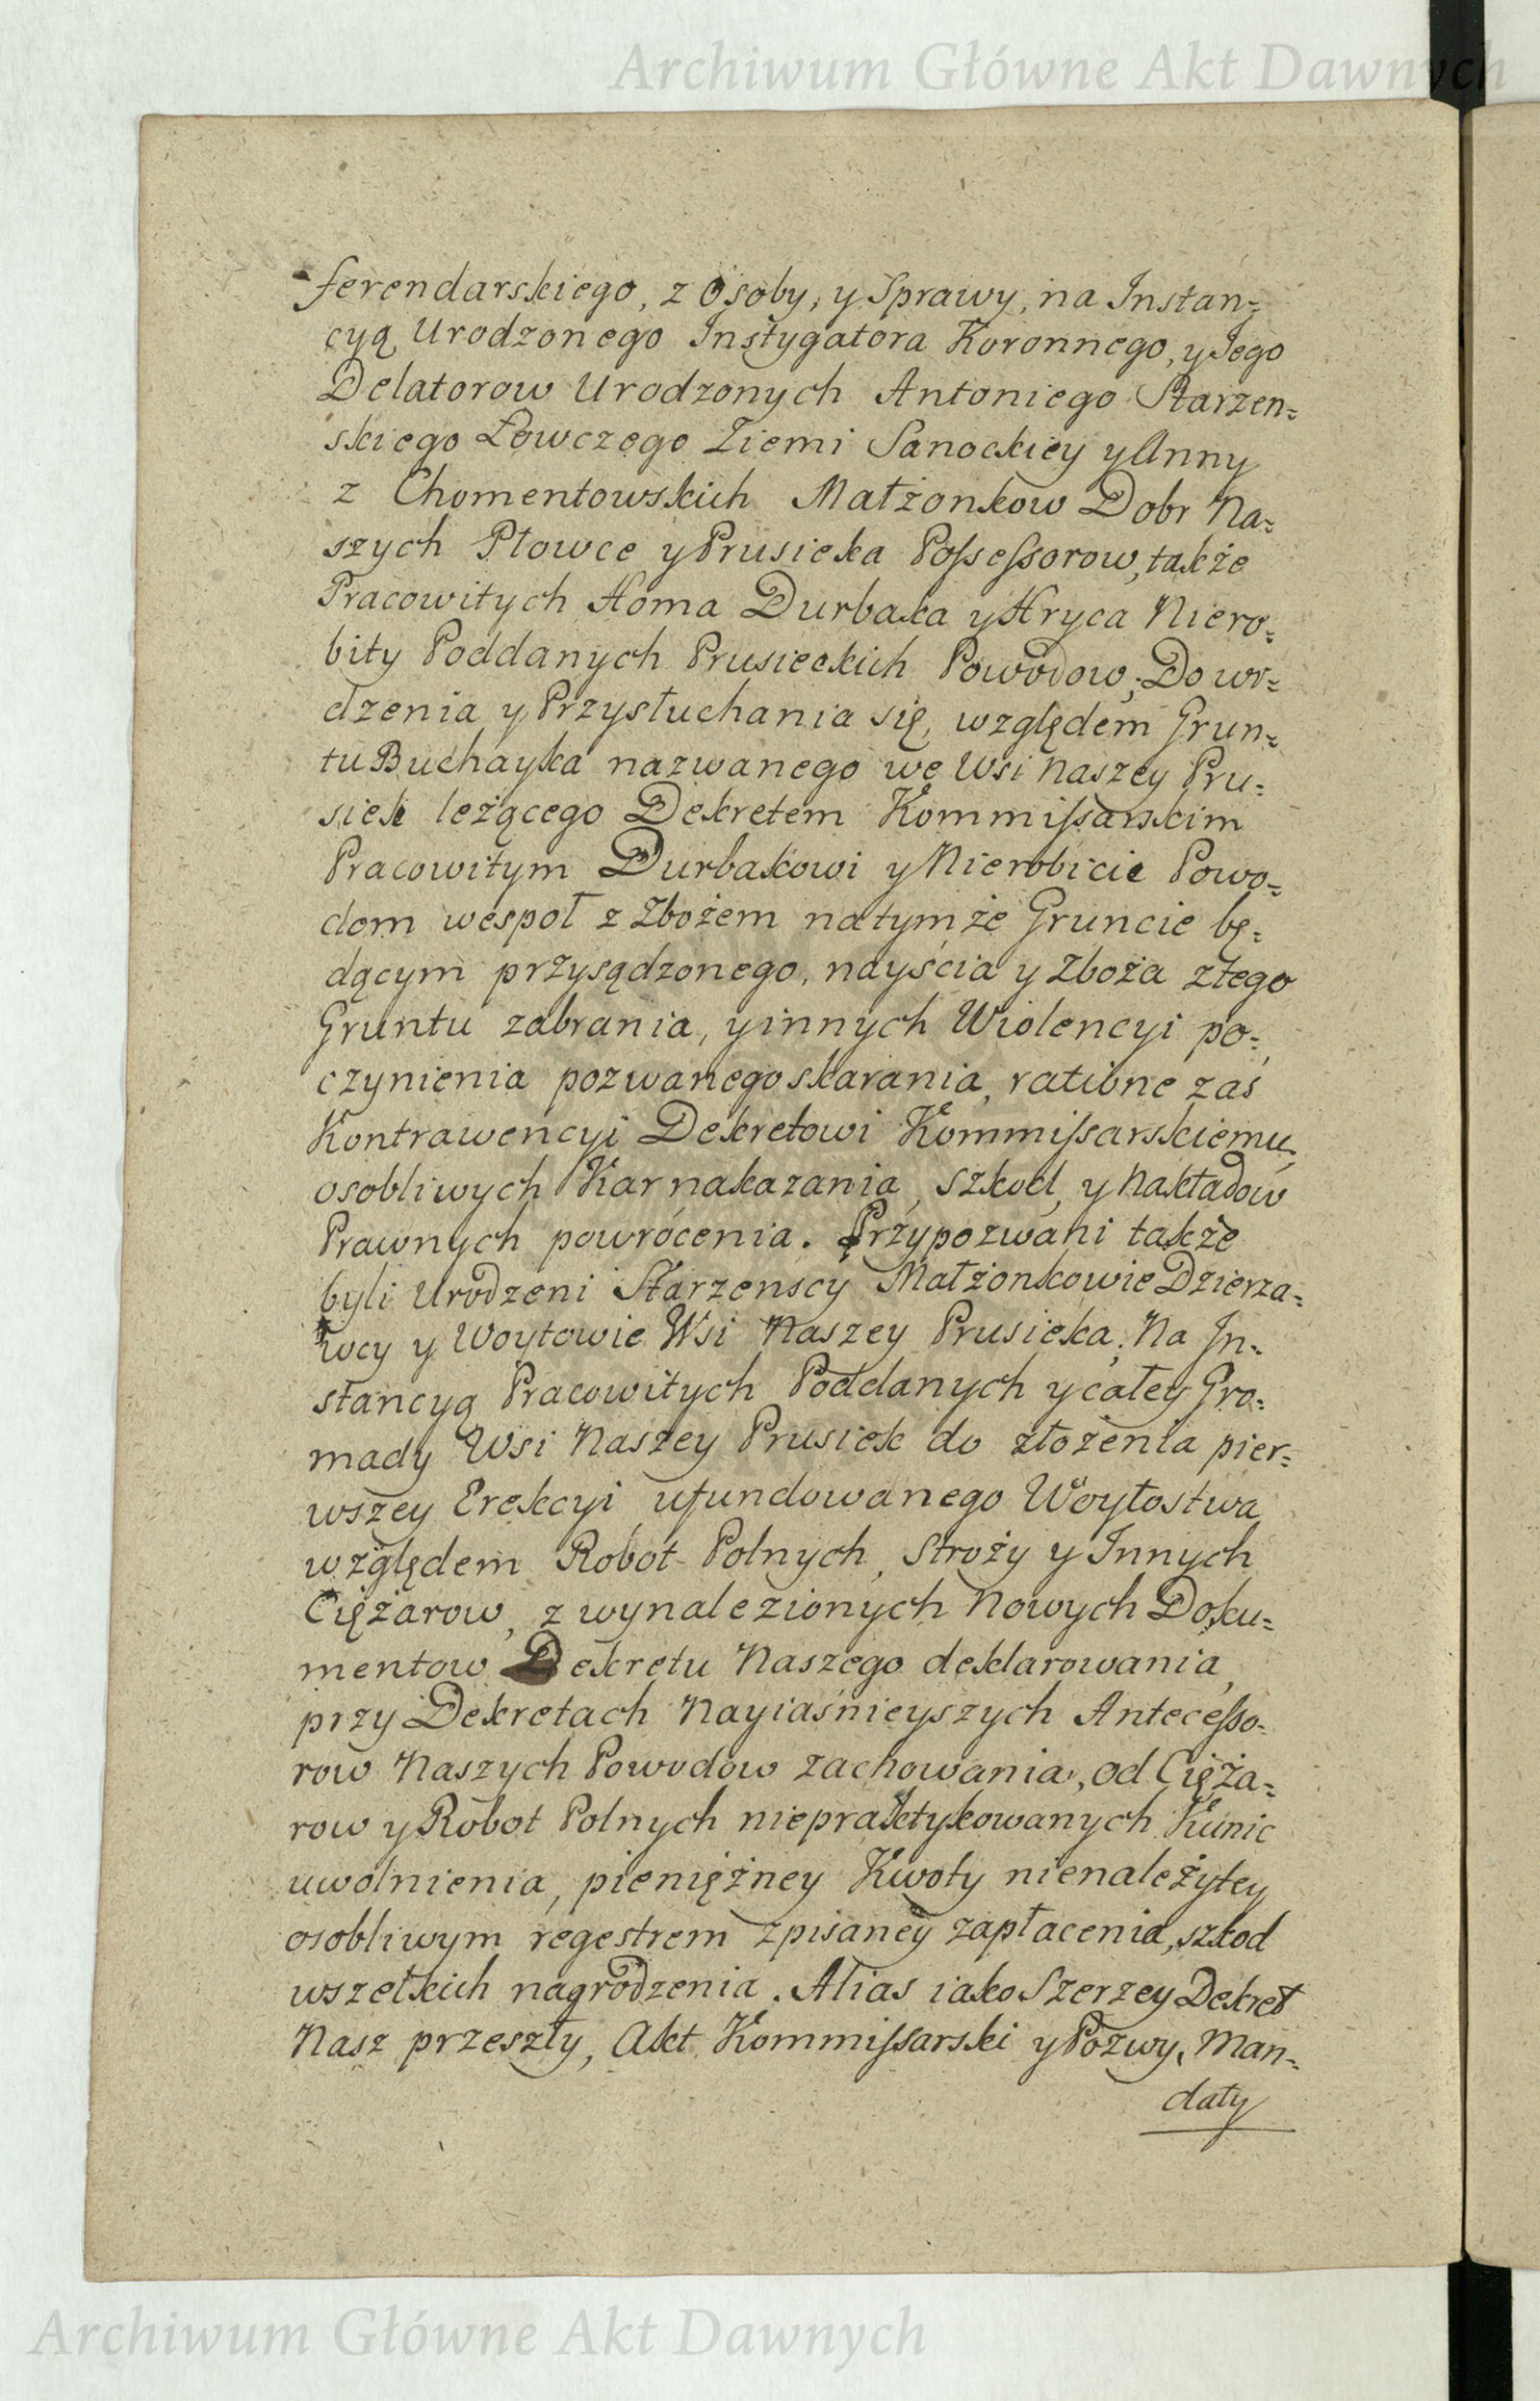 Archiwum Główne Akt Dawnych
ferendarskiego, z Osoby, y Sprawy, na Instan=
cyą Urodzonego Instygatora Koronnego, y Jego
Delatorow Urodzonych Antoniego Starzen=
skiego Łowczego Ziemi Sanockiey y Anny
z Chomentowskich Małżonkow Dobr Na=
szych Płowce y Prusieka Possessorow, także
Pracowitych Homa Durbaka y Hryca Niero=
bity Poddanych Prusieckich Powodow; Do wi=
dzenia y Przysłuchania się, względem Grun=
tu Buchayka nazwanego we Wsi Naszey Pru=
siek leżącego Dekretem Kommissarskim
Pracowitym Durbakowi y Nierobicie Powo=
dom wespoł z Zbożem na tymże Gruncie bę=
dącym przysądzonego, nayścia y Zboża z tego
Gruntu zabrania, y innych Wiolencyi po=
czynienia pozwanego skarania, ratione zaś
Kontrawencyi Dekretowi Kommissarskiemu,
osobliwych Kar nakazania, szkod, y Nakładow
Prawnych powrócenia. Przypozwani także
byli Urodzeni Starzenscy Małżonkowie Dzierza=
wcy y Woytowie Wsi Naszey Prusieka; Na In=
stancyą Pracowitych Poddanych y całey Gro=
mady Wsi Naszey Prusiek do złożenia pier=
wszey Erekcyi ufundowanego Woytostwa
względem Robot Polnych, Stroży y Innych
Ciężarow, z wynalezionych Nowych Doku=
mentow Dekretu Naszego deklarowania,
przy Dekretach Nayiaśnieyszych Antecesso=
row Naszych Powodow zachowania, od Cięża=
row y Robot Polnych niepraktykowanych Kunic
uwolnienia, pieniężney Kwoty nienależytey
osobliwym regestrem zpisaney zapłacenia, szkod
wszelkich nagrodzenia. Alias iako Szerzey Dekret
Nasz przeszły, Akt Kommissarski y Pozwy, Man=
daty
Archiwum Główne Akt Dawnych